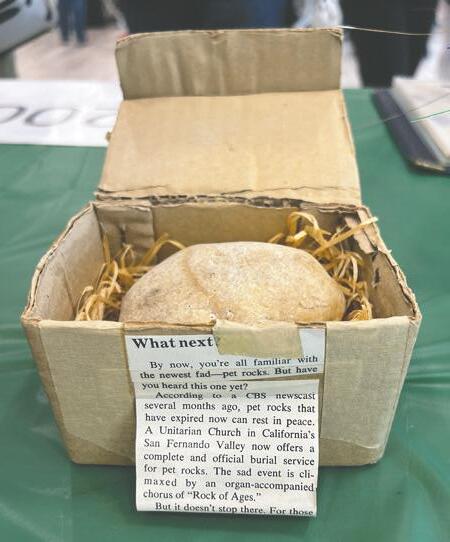 What next
By now, you're all familiar with
the newest fad—pet rocks. But have
you heard this one yet?
According to a CBS newscast
several months ago, pet rocks that
have expired now can rest in peace.
A Unitarian Church in California's
San Fernando Valley now offers a
complete and official burial service
for pet rocks. The sad event is cli-
maxed by an organ-accompanied
chorus of "Rock of Ages."
But it doesn't stop there. For those